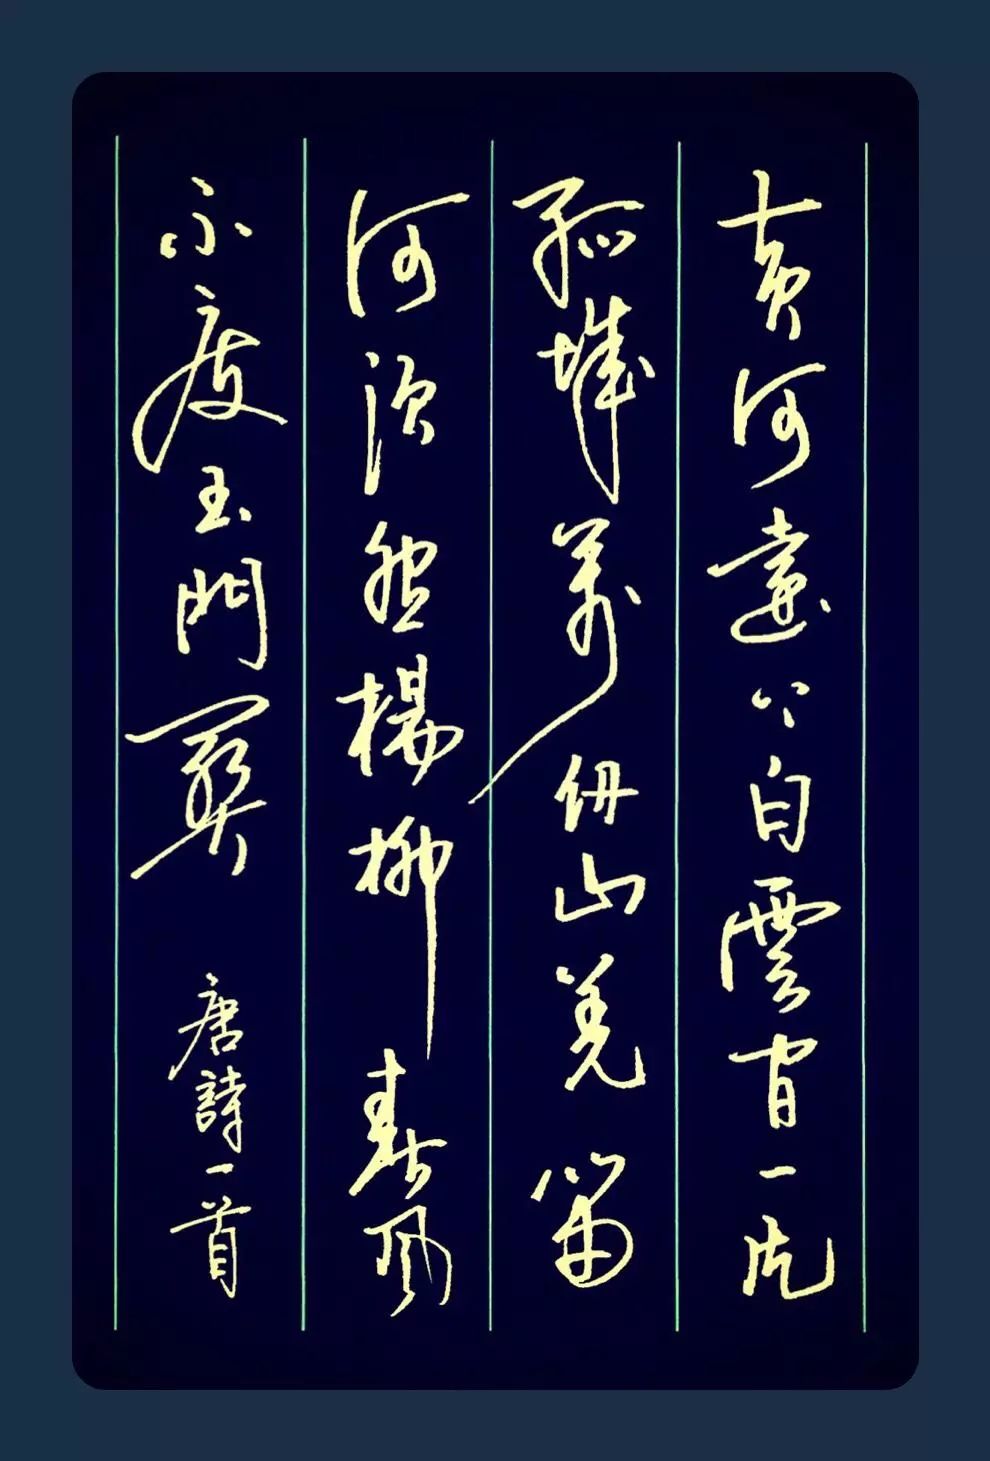 黃河遠上白雲間一片
孤城萬仞山羌笛
何須怨楊柳春風
不度玉門關 唐詩一首